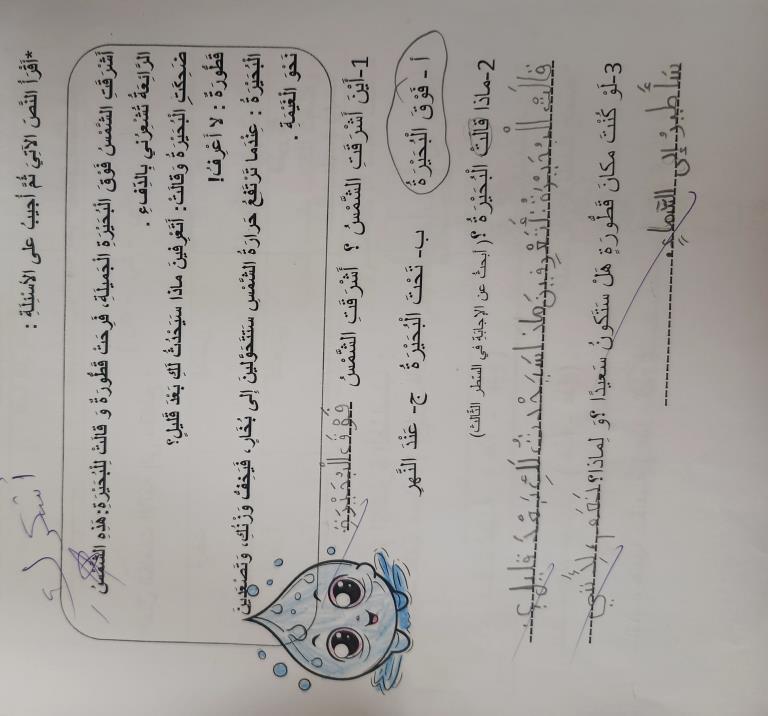 *أَقْرَأُ النَّصَّ الآتِيَ ثُمَّ أُجِيبُ على الأَسْئِلَةِ :
أَشْرَقَتِ الشَّمْسُ فَوْقَ الْبُحَيْرَةِ الْجَمِيلَةِ، فَرِحَتْ قَطُّورَةُ وَ قَالَتْ لِلْبُحَيْرَةِ: هَذِهِ الشَّمْسُ
الرَّائِعَةُ تُشْعِرُنِي بِالدِّفْءِ .
ضَحِكَتِ الْبُحَيْرَةُ وَقَالَتْ: أَتَعْرِفِينَ مَاذا سَيَحْدُثُ لَكِ بَعْدَ قَلِيلٍ؟
قَطُّورَةُ : لا أَعْرِفُ!
الْبُحَيْرَةُ : عِنْدَما تَرْتَفِعُ حَرارَةُ الشَّمْسِ سَتَتَحَوَّلِينَ إِلى بُخَارٍ، فَيَخِفُّ وَزْنُكِ، وَتَصْعَدِينَ
نَحْوَ الْغَيْمَةِ .
1-أَيْنَ أَشْرَقَتِ الشَّمْسُ ؟ أَشْرَقَتِ الشَّمْسُ فَوْقَ الْبُحَيْرَةِ
أ - فَوْقَ الْبُحَيْرَةُ ب- تَحْتَ الْبُحَيْرَةُ ج- عَنْدَ النَّهرِ
2-ماذا قَالَتْ الْبُحَيْرَةُ ؟( ابحثُ عن الإجابَةِ في السّطر الثّالث)
قَالَتْ الْبُحَيْرَة: أَتَعْرِفِينَ مَاذا سَيَحْدُثُ لَكِ بَعْدَ قَلِيلٍ؟
3-لَو كُنْتَ مَكانَ قَطُّورَةٍ هَلْ سَتَكونُ سَعيدًا ؟وَ لِماذا؟ نَعَم، لِأَنَّنِي
سَأَطِيرُ إِلى السَّماءِ